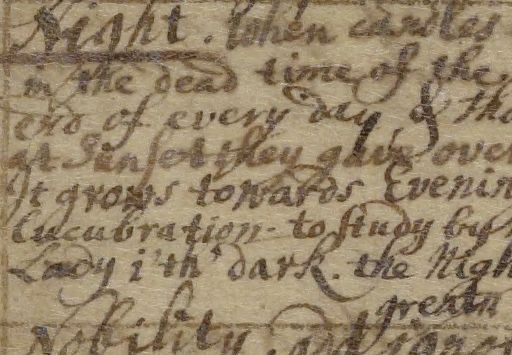 Night. When candles
in the dead time of the
end of every day & the
at Sunset they gave over
It grows towards Evenin
lucubration. to study by
Lady i'th' dark. the Nigh
greatn
Nobility. and